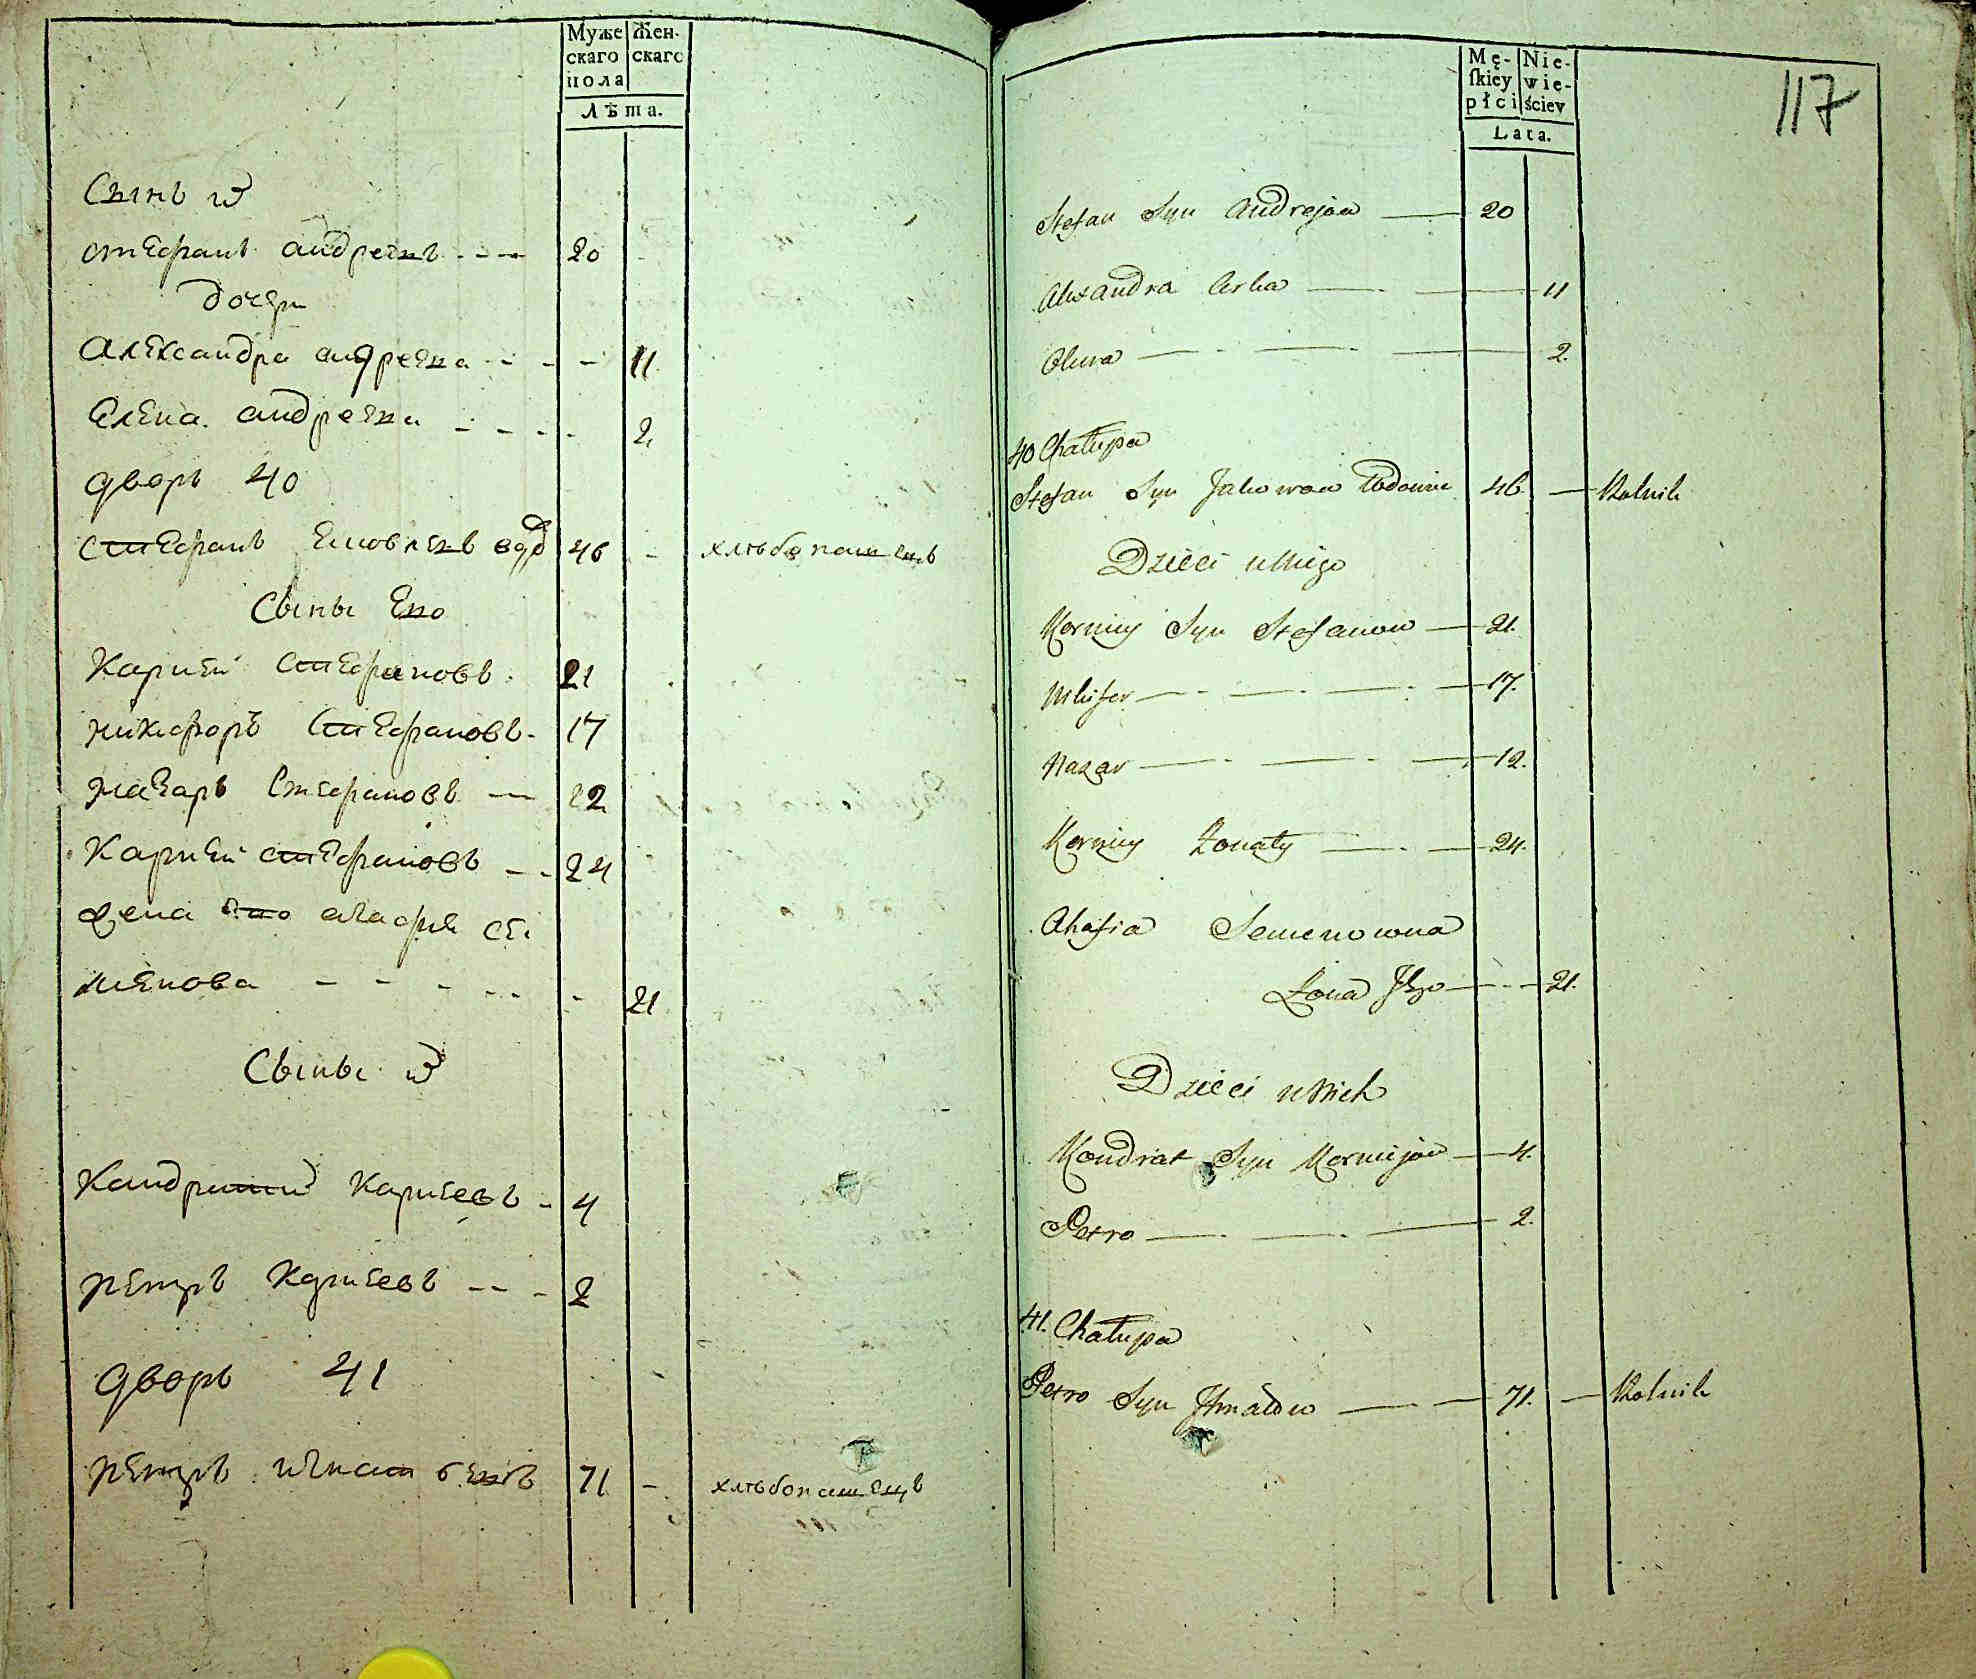 Муже
скаго
пола
Жен-
скаго
Лѣта.
Сынъ
стефанъ андреевъ 20
дочери
Александра андреева 11
Елена андреева 2
дворъ 40
стефанъ вдо 46 - хлѣбопашецъ
Сыны ево
Карней стефановъ 21
никифоръ стефановъ 17
стефановъ 12
Карней стефановъ 24
жена ево агафия се
менова 21
Сыны
Кандратий Карнеевъ 4
петръ Карнеевъ 2
дворъ 41
петръ 71 - хлѣбопашецъ
117
Mę-
skiey
płci
Nie-
wie-
ściey
Lata.
Stefan Syn Andrejow 20
Alexandra Corka 11
Olena 2.
40 Chałupa
Stefan Syn Jakowow Wdowiec 46 Rolnik
Dzieci u Niego
Korniey Syn Stefanow 21.
Mkifor 17.
Nazar 12.
Korniey Żonaty 24.
Ahafia Semenowna
Żona Jego 21.
Dzieci u Nich
Kondrat Syn Korniejow 4.
Petro 2.
41. Chałupa
Petro Syn 71. Rolnik